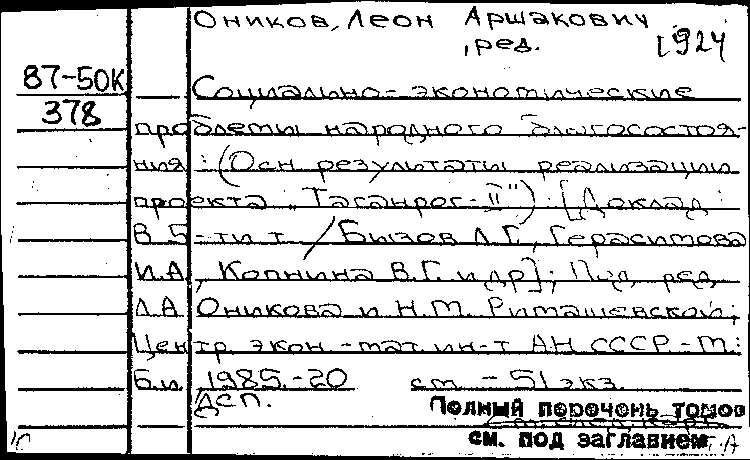 Оников, Леон Аршакович
, ред. 1924
87-50К
378
Социально-экономические
проблемы народного благосостоя-
ния: (Осн результаты реализации
проекта „Таганрог-II"): [Доклад:
В 5-ти т / Бызов Л.Г., Герасимова
И.А, Копнина В.Г. и др]; Под ред
Л.А Оникова и Н.М. Римашевской;
Центр. экон.-мат. ин-т АН СССР.-М.:
Б.и, 1985.-20 см - 51 экз.
ДСП.
Полный перечень томов
см. под заглавием